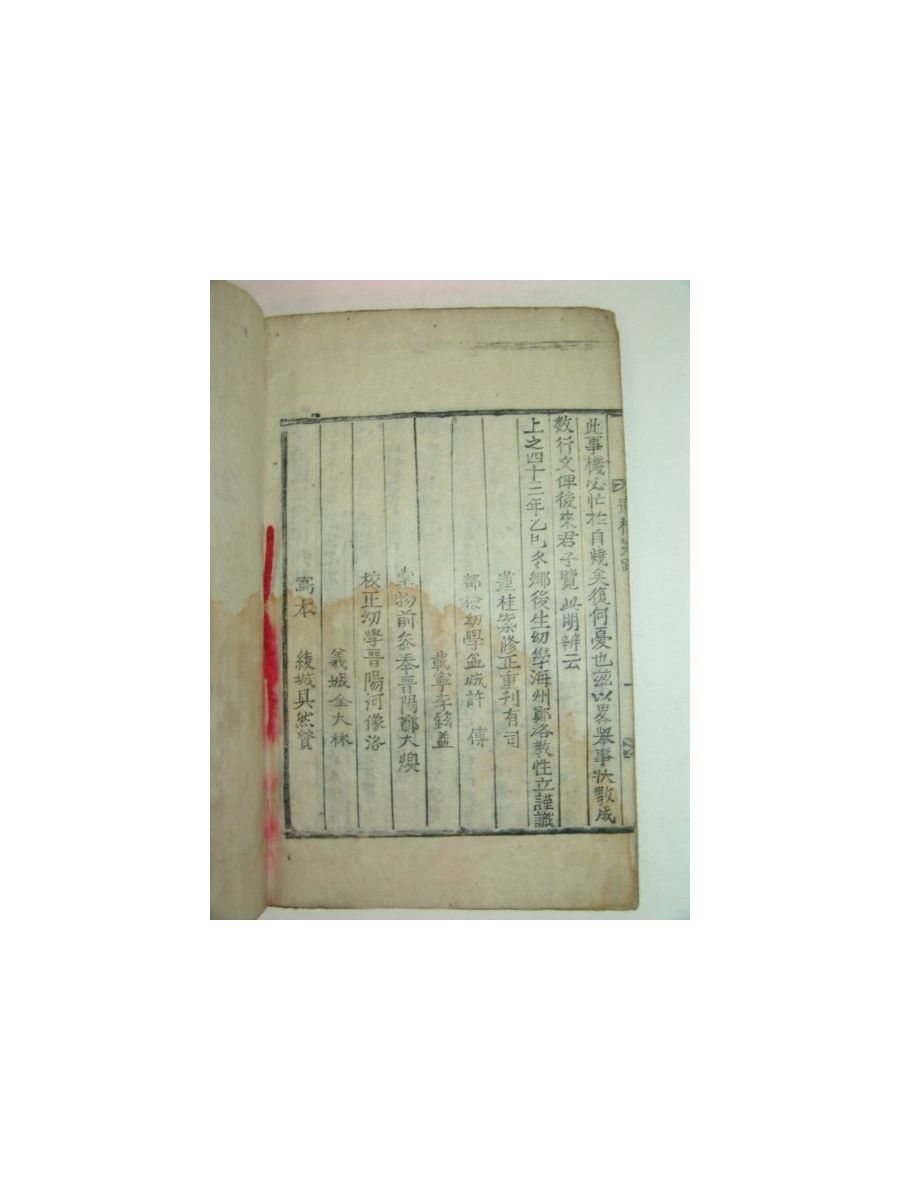 此事機必忙於自燒矣復何憂也茲以畧舉事狀敷成
数行文俾後來君子覽此明辨云
上之四十二年乙巳冬鄕後生幼學海州鄭洛敎性立謹識
蓮桂案修正重刊有司
幼學盆城許 傳
載寧李鉉益
前叅奉晉陽鄭大煥
校正幼學晉陽河像洛
義城金大林
寫本 綾城具然贊